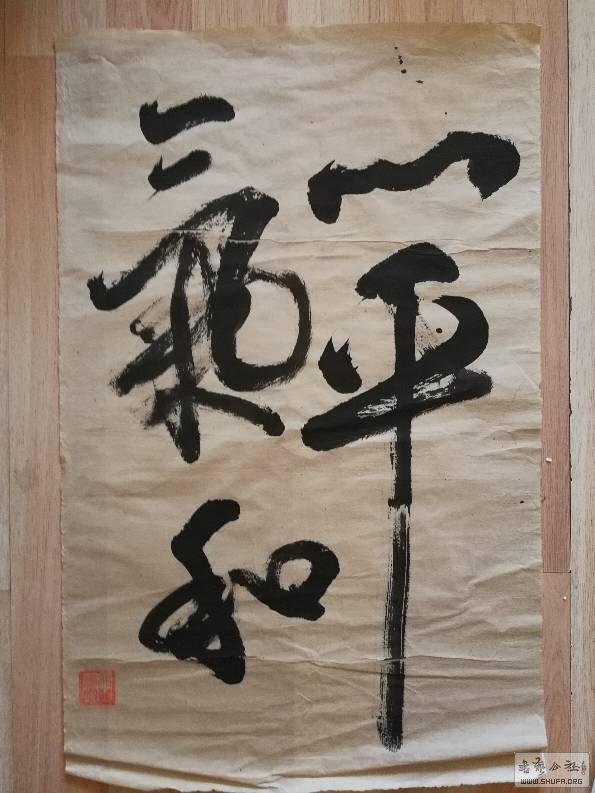 心平
氣和
书艺公社
WWW.SHUFA.ORG